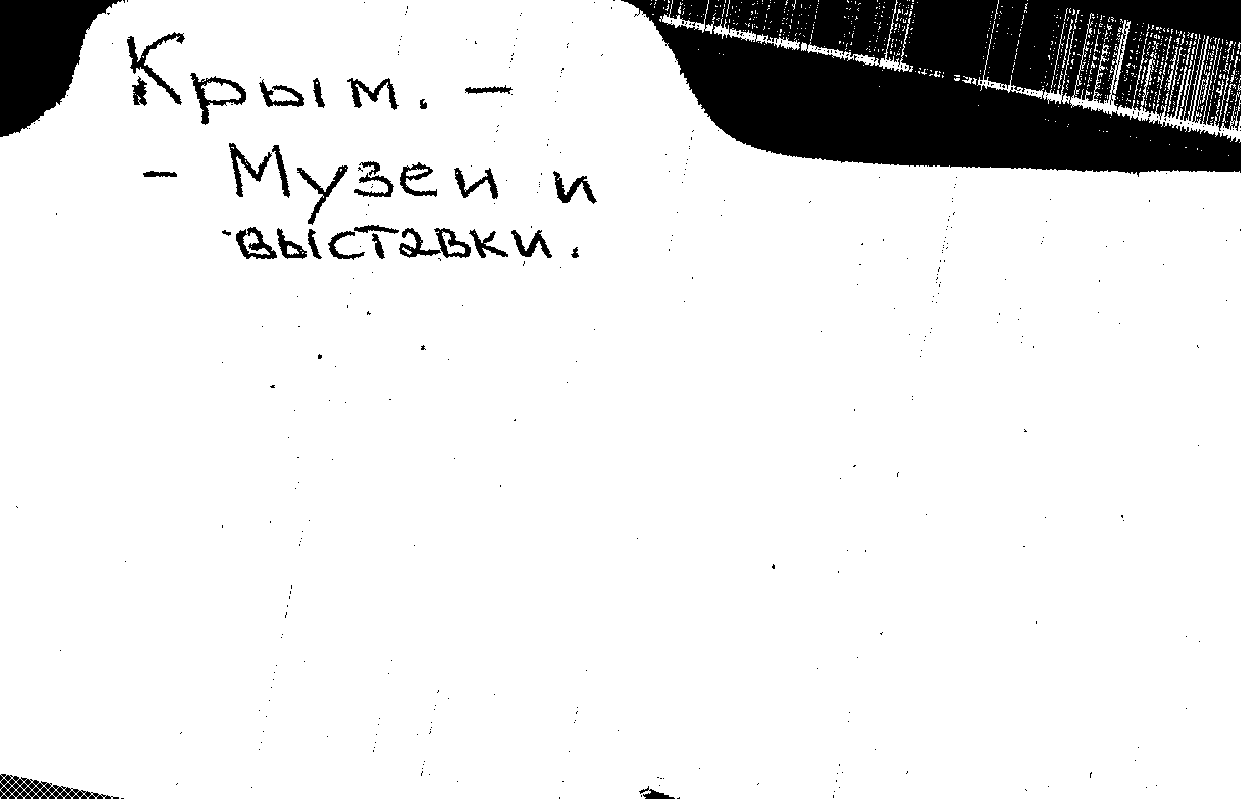 Крым. –
– Музеи и
выставки.